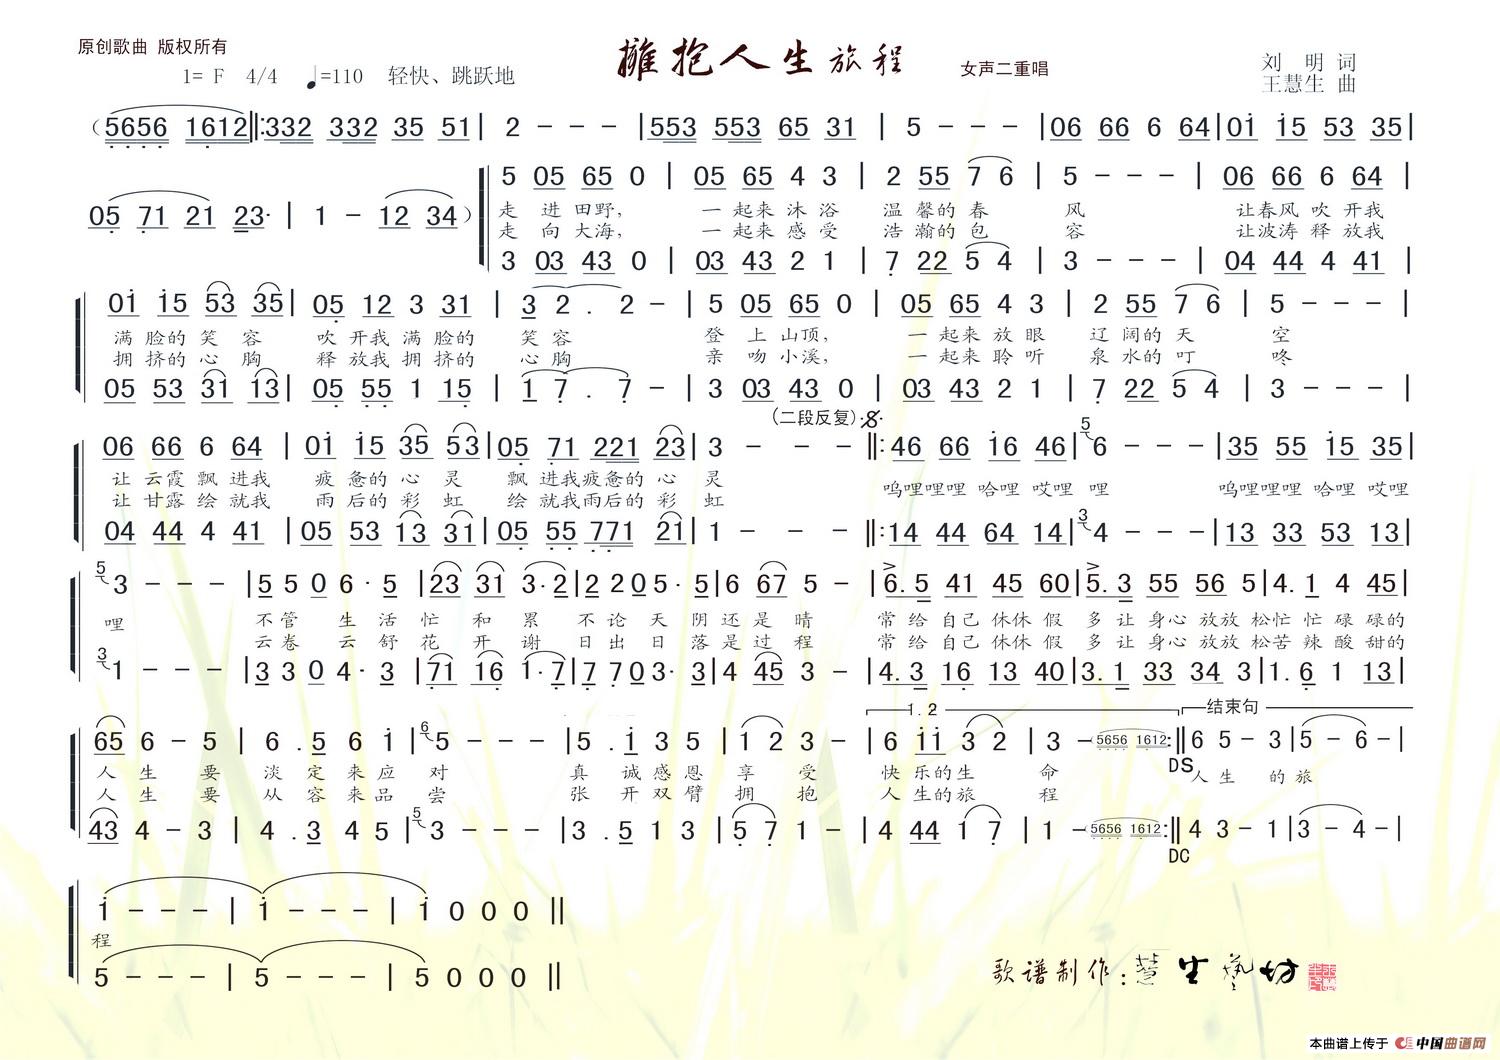 原创歌曲 版权所有
擁抱人生旅程
女声二重唱
刘 明 词
1= F 4/4 ♩=110 轻快、跳跃地
王慧生 曲
(5656 1612‖:332 332 35 51| 2 - - - |553 553 65 31 | 5 - - - |06 66 6 64|01 15 53 35|
5 05 65 0 | 05 65 4 3 | 2 55 7 6 | 5 - - - | 06 66 6 64 |
05 71 21 23· | 1 - 12 34)
走 进 田野, 一 起来 沐 浴 温 馨的 春 风 让春风 吹 开我
走 向 大海, 一 起来 感 受 浩 瀚的 包 容 让波涛 释 放我
3 03 43 0 | 03 43 2 1 | 7 22 5 4 | 3 - - - | 04 44 4 41 |
01 15 53 35| 05 12 3 31 | 3 2 . 2 - | 5 05 65 0 | 05 65 4 3 | 2 55 7 6 | 5 - - - |
满 脸的 笑 容 吹 开我 满 脸的 笑 容 登 上 山顶, 一 起来 放 眼 辽 阔的 天 空
拥 挤的 心 胸 释 放我 拥 挤的 心 胸 亲 吻 小溪, 一 起来 聆 听 泉 水的 叮 咚
05 53 31 13| 05 55 1 15 | 1 7 . 7 - | 3 03 43 0 | 03 43 2 1 | 7 22 5 4 | 3 - - - |
(二段反复)
06 66 6 64 | 01 15 35 53|05 71 221 23| 3 - - - ‖:46 66 16 46| 5 6 - - - |35 55 15 35|
让 云霞 飘 进我 疲 惫的 心 灵 飘 进我疲惫的 心 灵 呜哩哩哩 哈哩 哎哩 哩 呜哩哩哩 哈哩 哎哩
让 甘露 绘 就我 雨 后的 彩 虹 绘 就我雨后的 彩 虹
04 44 4 41 | 05 53 13 31|05 55 771 21| 1 - - - ‖:14 44 64 14| 3 4 - - - |13 33 53 13|
5 3 - - - |5 5 0 6· 5 |23 31 3·2|2 2 0 5· 5|6 67 5 - |6.5 41 45 60|5.3 55 56 5|4.1 4 45|
哩 不管 生 活 忙 和 累 不 论 天 阴 还 是 晴 常 给 自己 休休 假 多 让 身心 放放 松忙 忙 碌 碌的
云卷 云 舒 花 开 谢 日 出 日 落 是 过 程 常 给 自己 休休 假 多 让 身心 放放 松苦 辣 酸 甜的
3 1 - - - |3 3 0 4· 3 |71 16 1·7|7 7 0 3· 3|4 45 3 - |4.3 16 13 40|3.1 33 34 3|1.6 1 13|
1.2 结束句
65 6 - 5 | 6 .5 6 1| 6 5 - - - | 5 .1 3 5 | 1 2 3 - | 6 11 3 2 | 3 -(5656 1612:‖6 5 - 3|5 - 6 -|
DS
人 生 要 淡 定 来 应 对 真 诚 感 恩 享 受 快 乐的 生 命 人 生 的 旅
人 生 要 从 容 来 品 尝 张 开 双 臂 拥 抱 人 生的 旅 程
43 4 - 3 | 4 .3 4 5 | 5 3 - - - | 3 .5 1 3 | 5 7 1 - | 4 44 1 7 | 1 -(5656 1612:‖4 3 - 1|3 - 4 -|
DC
1 - - - | 1 - - - | 1 0 0 0 ‖
程
5 - - - | 5 - - - | 5 0 0 0 ‖
歌谱制作:慧生艺坊
本曲谱上传于 中国曲谱网